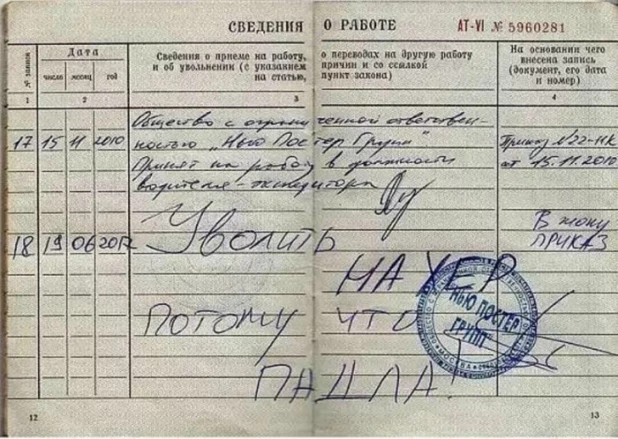 СВЕДЕНИЯ О РАБОТЕ
АТ-VI № 5960281
№ записи
Дата
число месяц год
Сведения о приеме на работу, о переводах на другую работу
и об увольнении (с указанием причин и со ссылкой
на статью, пункт закона)
На основании чего
внесена запись
(документ, его дата
и номер)
1 2 3 4
Общество с ограниченной ответствен-
17 15 11 2010 ностью „Нью Постер Групп“ Приказ №22-НК
Принят на работу в должности от 15.11.2010
водителя-экспедитора
18 19 06 2012 Уволить В жопу
ПРИКАЗ
НА ХЕР
ПОТОМУ ЧТО
ПАДЛА!
НЬЮ ПОСТЕР
ГРУПП
МОСКВА
12 13